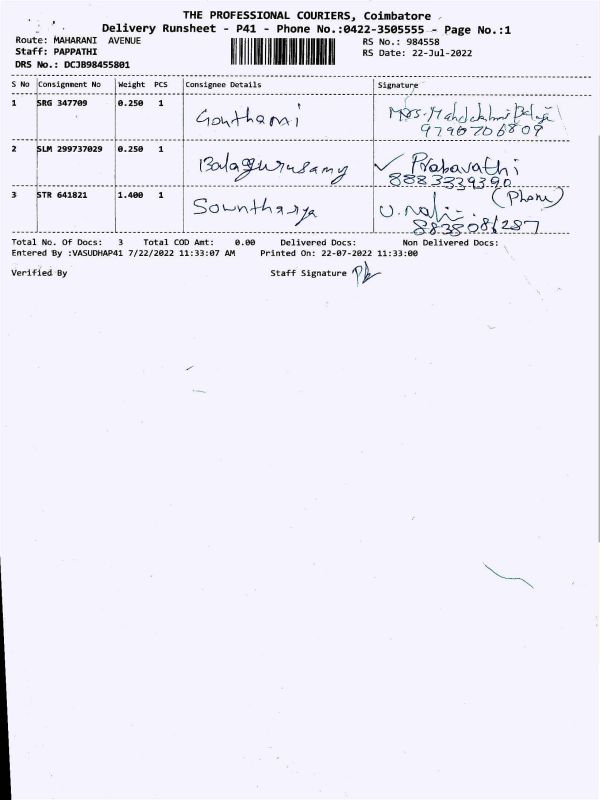 THE PROFESSIONAL COURIERS, Coimbatore
Delivery Runsheet - P41 - Phone No.:0422-3505555 - Page No.:1
Route: MAHARANI AVENUE RS No.: 984558
Staff: PAPPATHI RS Date: 22-Jul-2022
DRS No.: DCJB98455801
S No Consignment No Weight PCS Consignee Details Signature
1 SRG 347709 0.250 1 Gouthami Mrs.
9790706809
2 SLM 299737029 0.250 1 Balagurusamy ✓ Prabavathi
8883339390
3 STR 641821 1.400 1 Sowntharya (Phone)
8838081287
Total No. Of Docs: 3 Total COD Amt: 0.00 Delivered Docs: Non Delivered Docs:
Entered By :VASUDHAP41 7/22/2022 11:33:07 AM Printed On: 22-07-2022 11:33:00
Verified By Staff Signature